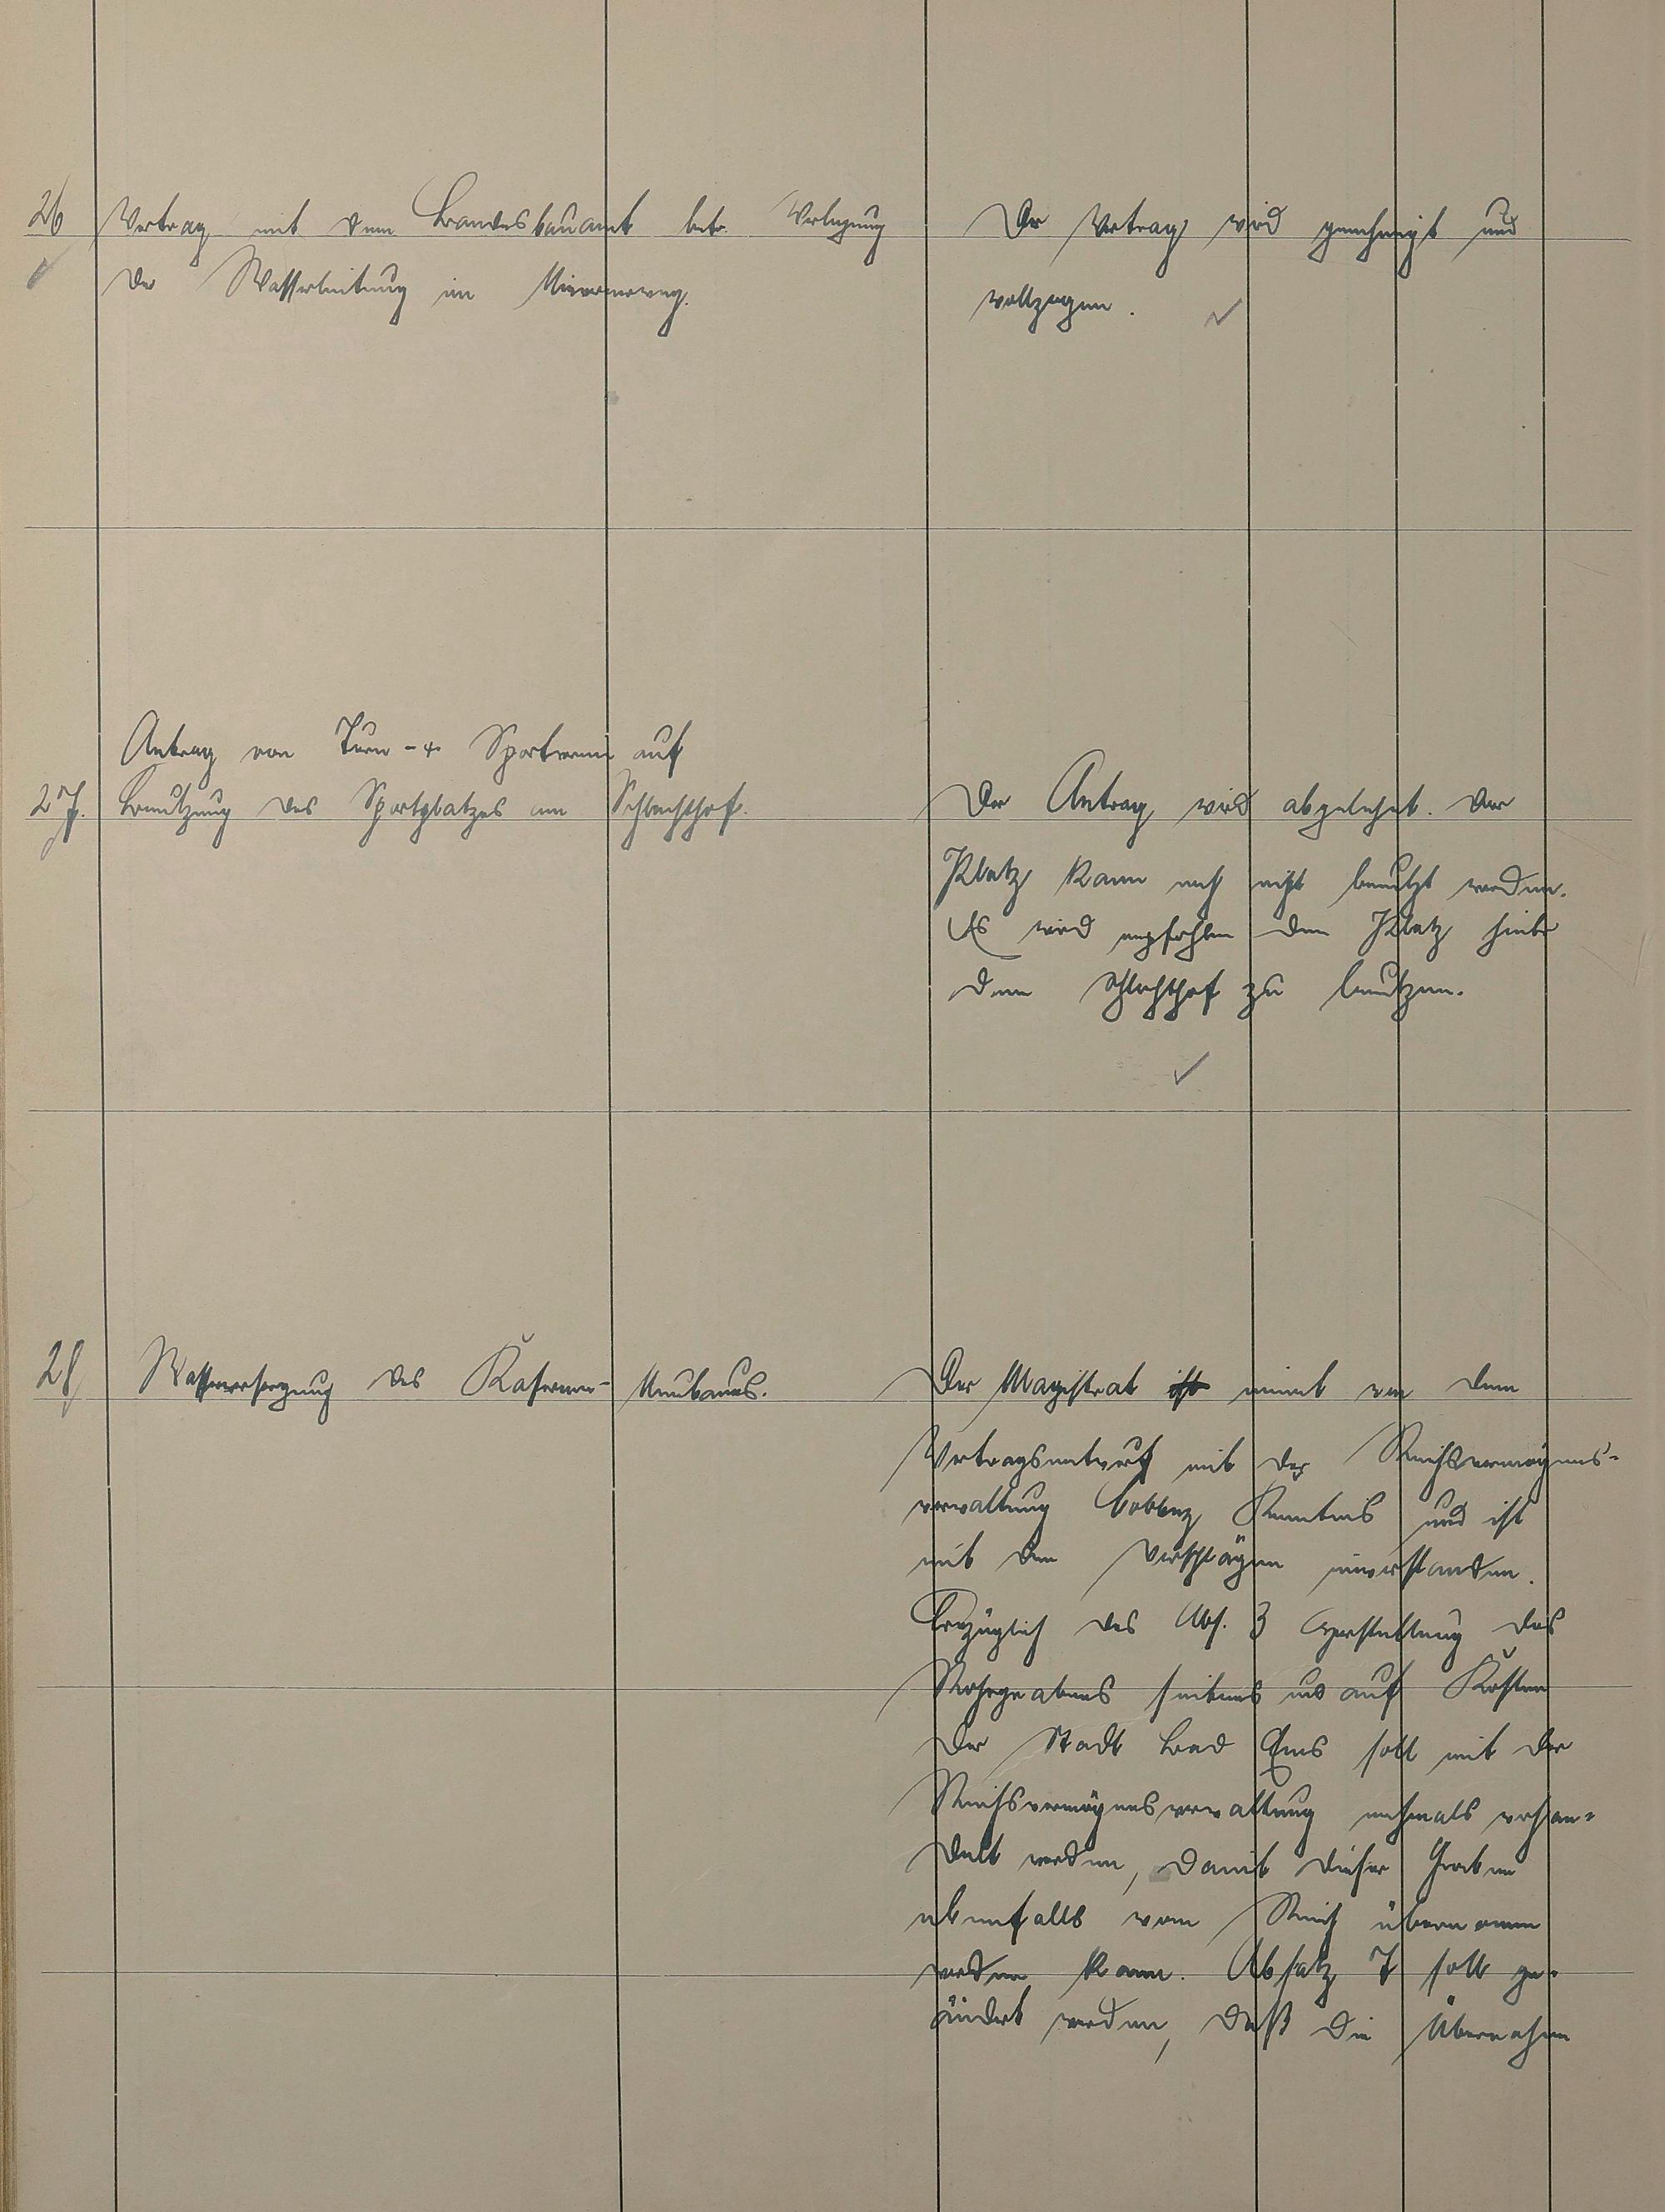 26 Vertrag mit dem Landesbauamt betr. Verlegung
der Wasserleitung im
Der Vertrag wird genehmigt und
vollzogen.
Antrag von Turn- & Sportverein auf
27. Benutzung des Sportplatzes am Schlachthof.
Der Antrag wird abgelehnt. Der
Platz kann noch nicht benutzt werden.
Es wird empfohlen den Platz hinter
dem Schlachthof zu benutzen.
28 Wasserversorgung des Kasernen-Neubaues.
Der Magistrat ist nimmt von dem
Vertragsentwurf mit der Reichsvermögens-
verwaltung Coblenz Kenntnis und ist
mit den Vorschlägen einverstanden.
Bezüglich des Abs. 3 Herstellung des
Rohrgrabens seitens und auf Kosten
der Stadt Bad Ems soll mit der
Reichsvermögensverwaltung nochmals verhan-
delt werden, damit dieser Graben
ebenfalls vom Reich übernommen
werden kann. Absatz 7 soll ge-
ändert werden, daß die Übernahme